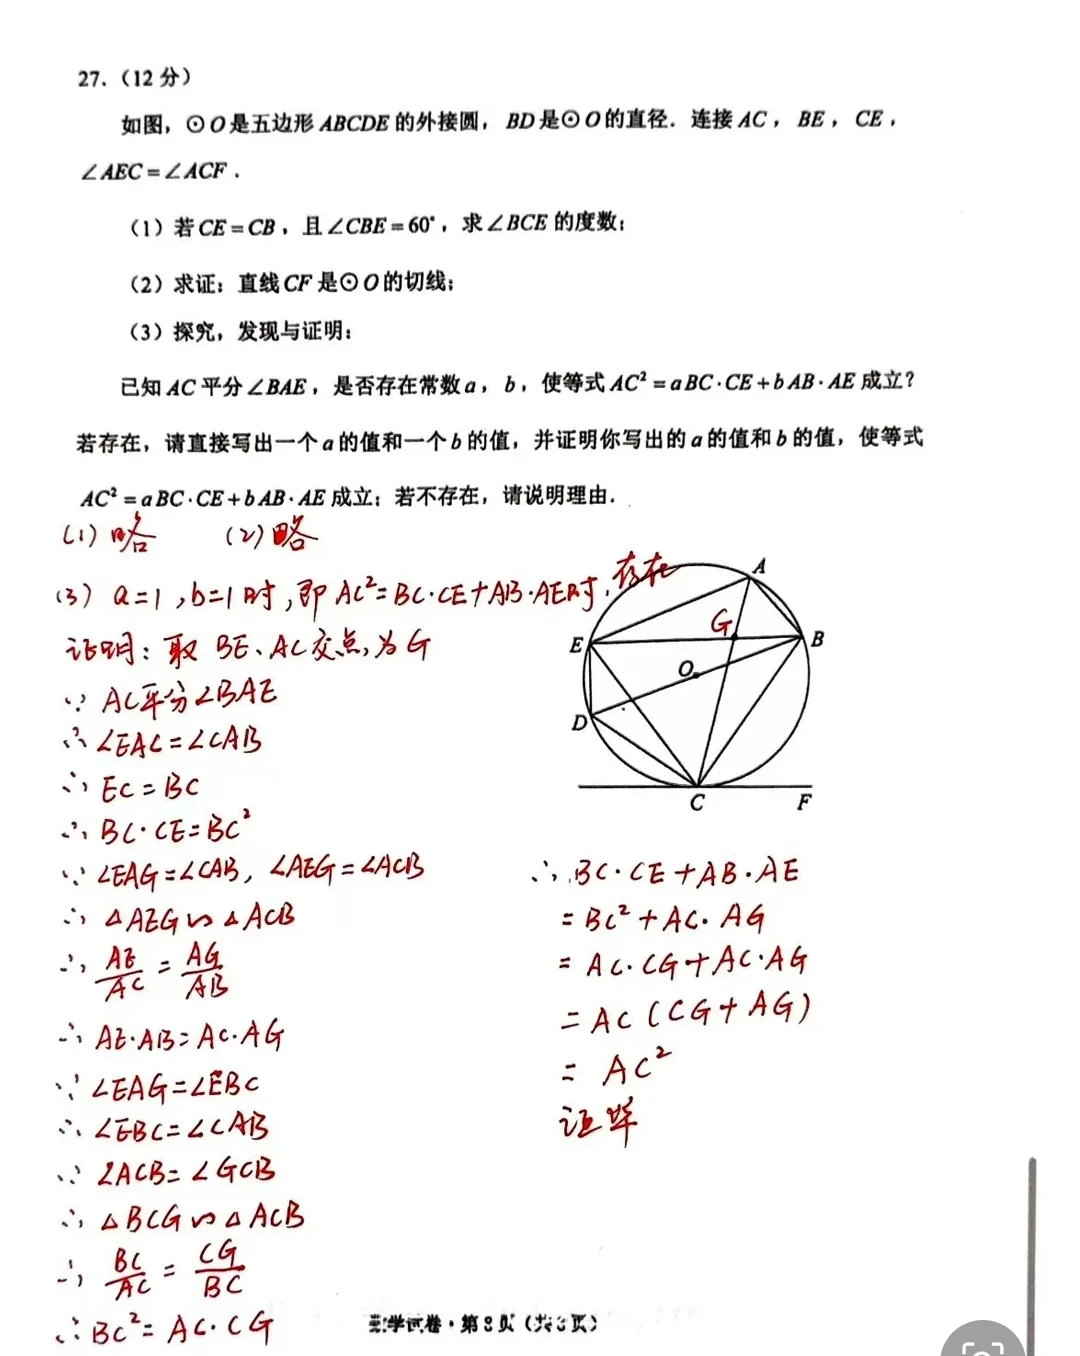 27.（12 分）
如图，⊙O是五边形 ABCDE 的外接圆，BD是⊙O的直径．连接 AC，BE，CE，
∠AEC=∠ACF．
（1）若CE=CB，且∠CBE=60°，求∠BCE 的度数；
（2）求证：直线CF 是⊙O的切线；
（3）探究，发现与证明：
已知 AC 平分∠BAE，是否存在常数a，b，使等式AC²=aBC·CE+bAB·AE 成立？
若存在，请直接写出一个a的值和一个b的值，并证明你写出的a的值和b的值，使等式
AC²=aBC·CE+bAB·AE 成立；若不存在，请说明理由．
(1) 略 (2) 略
(3) a=1，b=1时，即AC²=BC·CE+AB·AE时，存在
证明：取 BE、AC交点，为G
∵ AC平分∠BAE
∴ ∠EAC=∠CAB
∴ EC=BC
∴ BC·CE=BC²
∵ ∠EAG=∠CAB，∠AEG=∠ACB
∴ △AEG∽△ACB
∴ AE/AC = AG/AB
∴ AE·AB=AC·AG
∵ ∠EAG=∠EBC
∴ ∠EBC=∠CAB
∵ ∠ACB=∠GCB
∴ △BCG∽△ACB
∴ BC/AC = CG/BC
∴ BC²=AC·CG
A
G
E
B
O
D
C
F
∴ BC·CE+AB·AE
= BC²+AC·AG
= AC·CG+AC·AG
= AC(CG+AG)
= AC²
证毕
数学试卷·第8页（共8页）